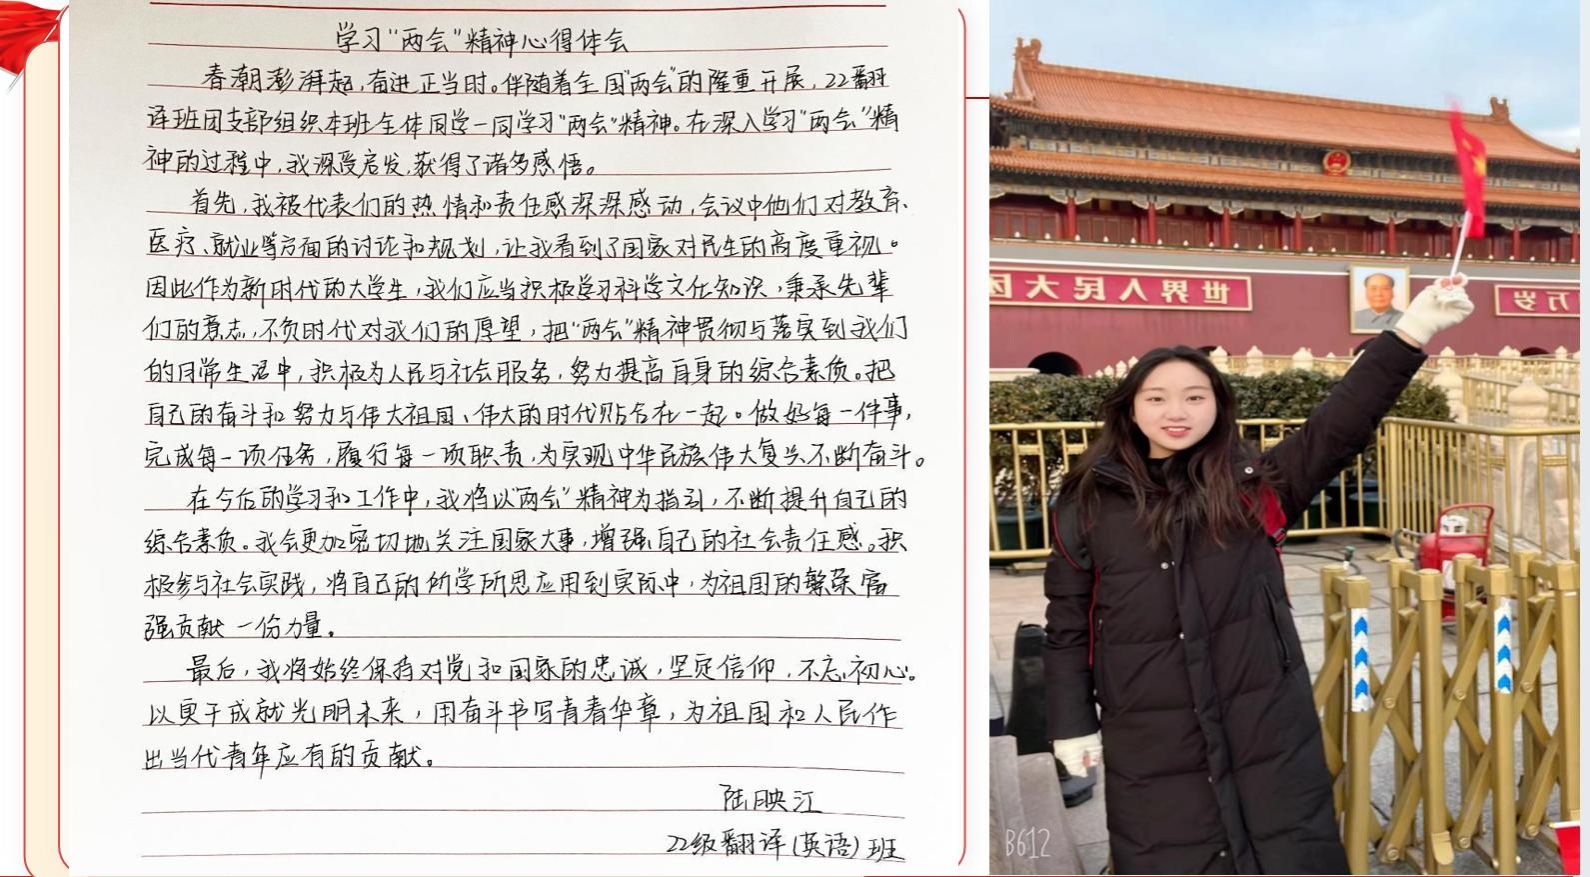 学习“两会”精神心得体会
春潮澎湃起,奋进正当时。伴随着全国“两会”的隆重开展,22翻
译班团支部组织本班全体同学一同学习“两会”精神。在深入学习“两会”精
神的过程中,我深受启发,获得了诸多感悟。
首先,我被代表们的热情和责任感深深感动,会议中他们对教育、
医疗、就业等方面的讨论和规划,让我看到了国家对民生的高度重视。
因此作为新时代的大学生,我们应当积极学习科学文化知识,秉承先辈
们的意志,不负时代对我们的厚望,把“两会”精神贯彻与落实到我们
的日常生活中,积极为人民与社会服务,努力提高自身的综合素质。把
自己的奋斗和努力与伟大祖国、伟大的时代贴合在一起。做好每一件事,
完成每一项任务,履行每一项职责,为实现中华民族伟大复兴不断奋斗。
在今后的学习和工作中,我将以“两会”精神为指引,不断提升自己的
综合素质。我会更加密切地关注国家大事,增强自己的社会责任感。积
极参与社会实践,将自己的所学所思应用到实际中,为祖国的繁荣富
强贡献一份力量。
最后,我将始终保持对党和国家的忠诚,坚定信仰,不忘初心。
以更于成就光明未来,用奋斗书写青春华章,为祖国和人民作
出当代青年应有的贡献。
陆映江
22级翻译(英语)班
世界人民大团
万岁
B612